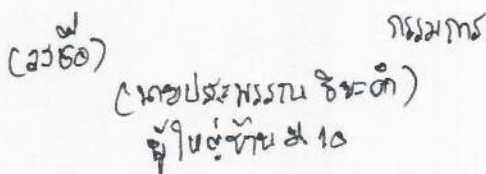 (ลงชื่อ) กรรมการ
(นายประพรรณ ธิยะคำ)
ผู้ใหญ่บ้าน ม.10